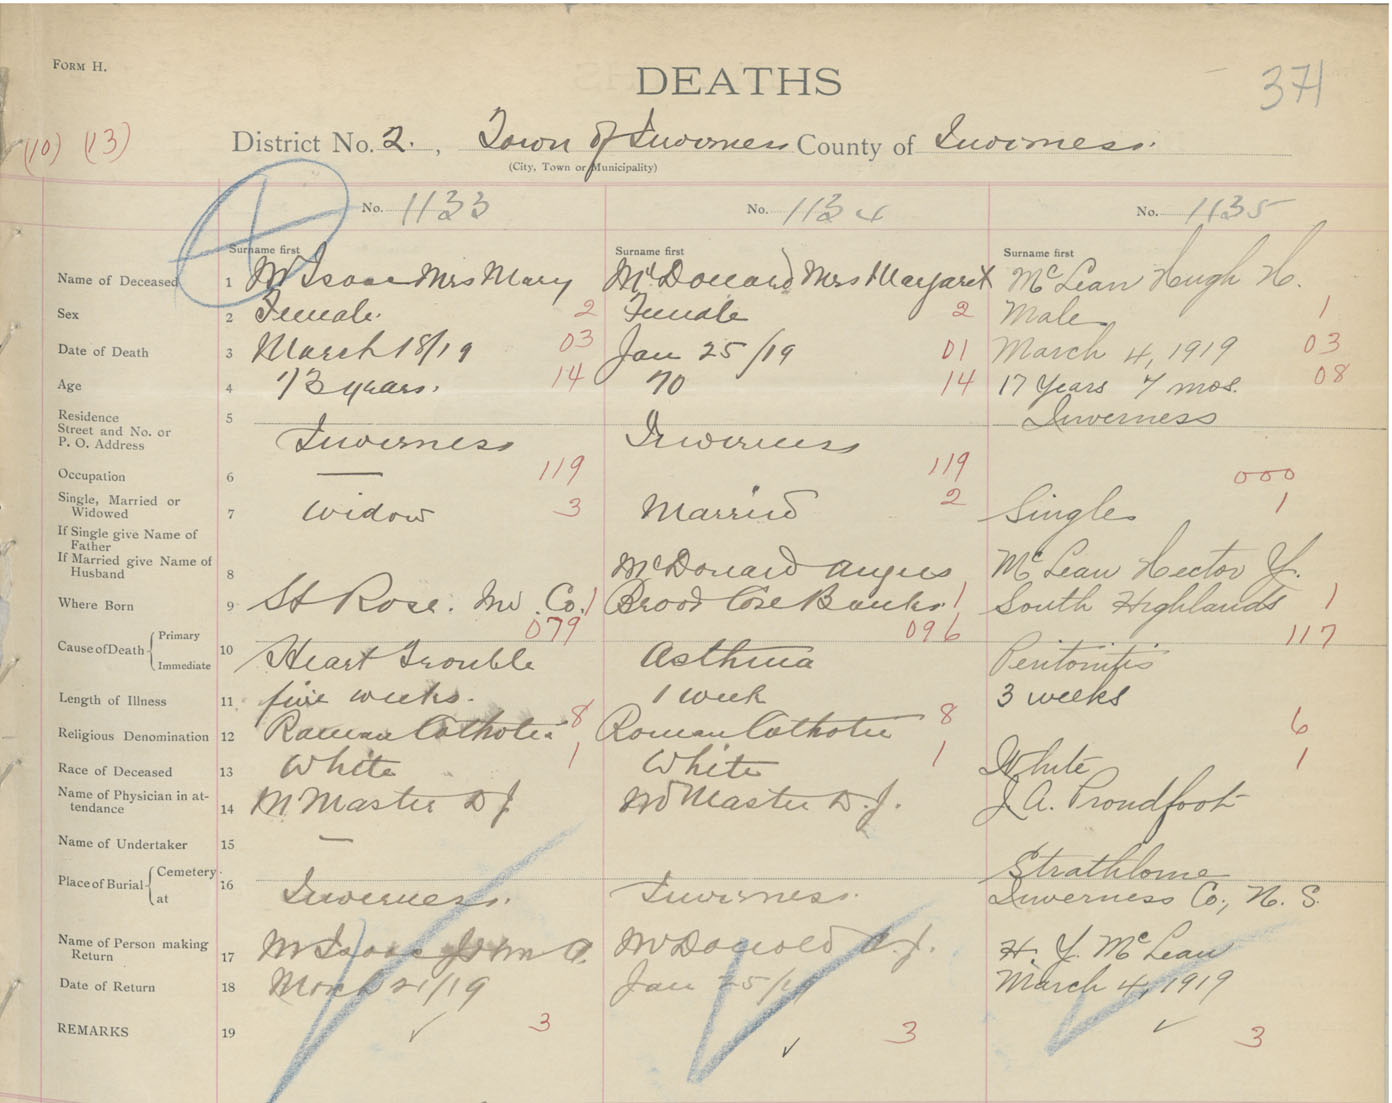 FORM H.
DEATHS
371
(10) (13)
District No. 2. , Town of Inverness County of Inverness.
(City, Town or Municipality)
No. 1133 No. 1134 No. 1135
Surname first Surname first Surname first
Name of Deceased 1 McIsaac Mrs Mary McDonald Mrs Margaret McLean Hugh H.
Sex 2 Female. 2 Female 2 Male 1
Date of Death 3 March 18/19 03 Jan 25/19 01 March 4, 1919 03
Age 4 73 years. 14 70 14 17 Years 7 mos. 08
Residence
Street and No. or
P. O. Address 5 Inverness Inverness Inverness
Occupation 6 — 119 119 000
Single, Married or
Widowed 7 Widow 3 Married 2 Single 1
If Single give Name of
Father
If Married give Name of
Husband 8 McDonald Angus McLean Hector Y.
Where Born 9 St Rose. Inv. Co. 1 Broad Cove Banks. 1 South Highlands 1
079 096 117
Cause of Death Primary
Immediate 10 Heart Trouble Asthma Peritonitis
Length of Illness 11 five weeks. 1 week 3 weeks
Religious Denomination 12 Roman Catholic 8 Roman Catholic 8 6
Race of Deceased 13 White 1 White 1 White 1
Name of Physician in at-
tendance 14 McMaster D J. McMaster D. J. J. A. Proudfoot
Name of Undertaker 15 —
Place of Burial Cemetery
at 16 Inverness. Inverness. Strathlorne
Inverness Co., N. S.
Name of Person making
Return 17 McIsaac John A. McDonald J. H. Y. McLean
Date of Return 18 March 21/19 Jan 25/19 March 4, 1919
REMARKS 19 ✓ 3 ✓ 3 ✓ 3